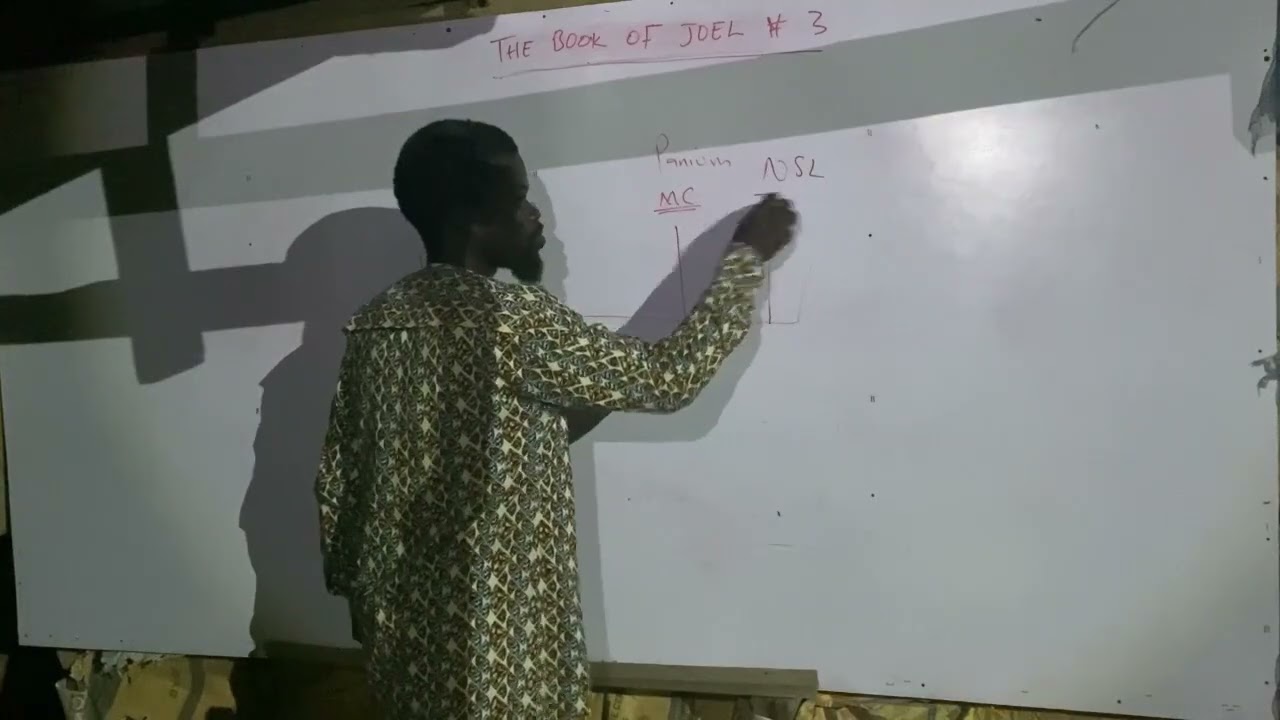 THE BOOK OF JOEL # 3
Panium NSL
MC